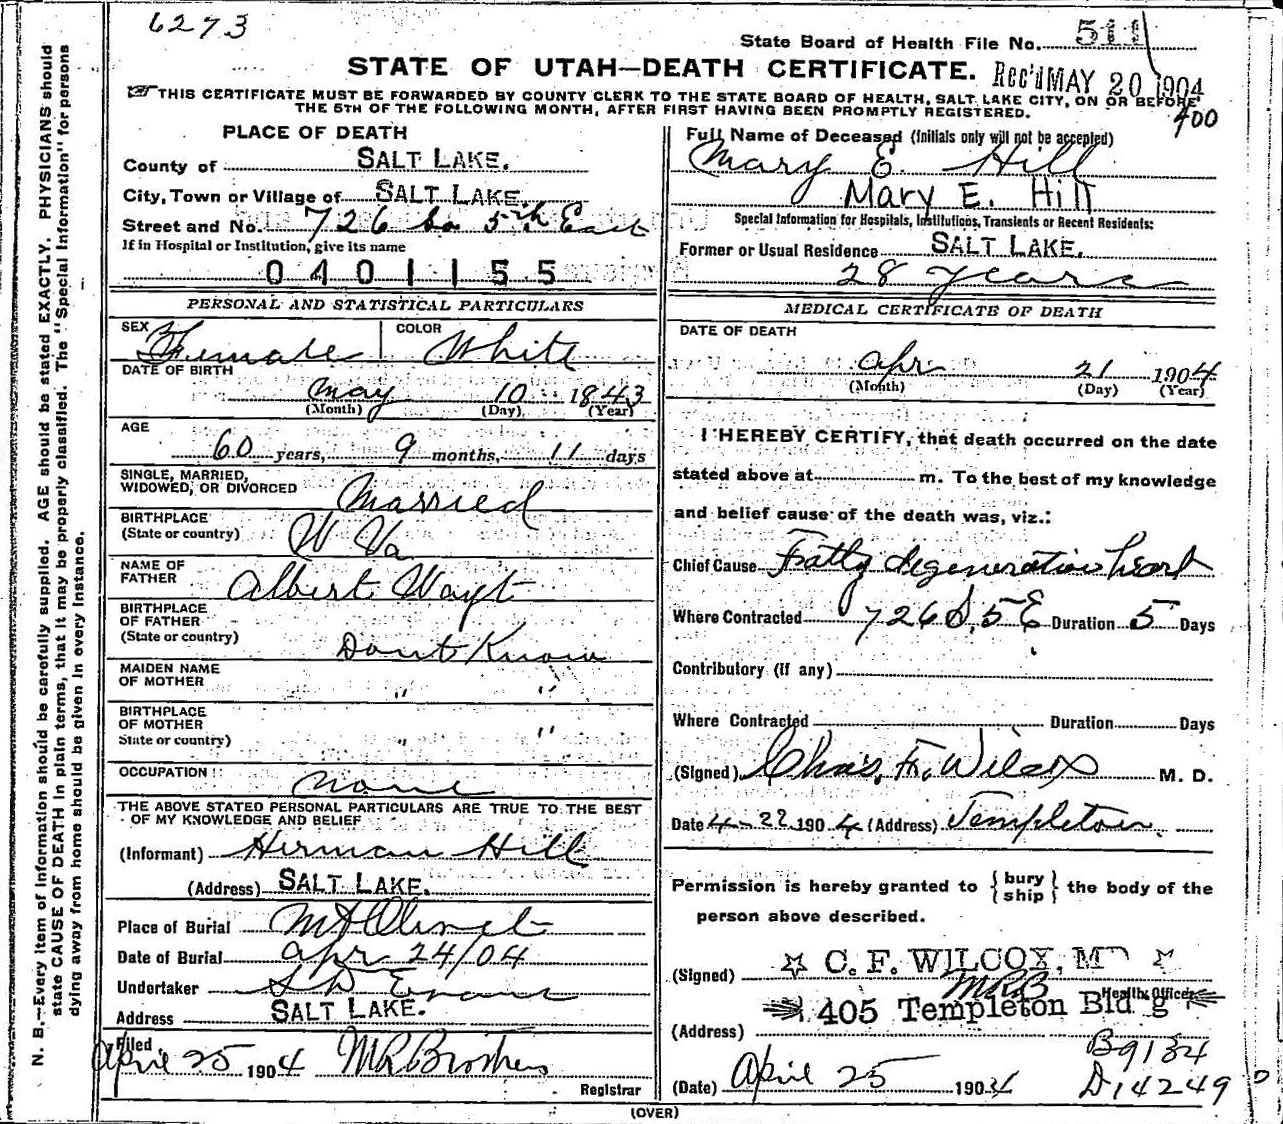 6273
State Board of Health File No. 511
STATE OF UTAH—DEATH CERTIFICATE.
Rec'd MAY 20 1904
THIS CERTIFICATE MUST BE FORWARDED BY COUNTY CLERK TO THE STATE BOARD OF HEALTH, SALT LAKE CITY, ON OR BEFORE
THE 5TH OF THE FOLLOWING MONTH, AFTER FIRST HAVING BEEN PROMPTLY REGISTERED.
400
PLACE OF DEATH
County of SALT LAKE.
City, Town or Village of SALT LAKE.
Street and No. 726 So 5th East
If in Hospital or Institution, give its name
0401155
PERSONAL AND STATISTICAL PARTICULARS
SEX Female COLOR White
DATE OF BIRTH
May 10 1843
(Month) (Day) (Year)
AGE
60 years, 9 months, 11 days
SINGLE, MARRIED,
WIDOWED, OR DIVORCED Married
BIRTHPLACE
(State or country) W Va
NAME OF
FATHER Albert Wayt
BIRTHPLACE
OF FATHER
(State or country) Dont Know
MAIDEN NAME
OF MOTHER " "
BIRTHPLACE
OF MOTHER
State or country) " "
OCCUPATION none
THE ABOVE STATED PERSONAL PARTICULARS ARE TRUE TO THE BEST
OF MY KNOWLEDGE AND BELIEF
(Informant) Herman Hill
(Address) SALT LAKE.
Place of Burial Mt Olivet
Date of Burial Apr 24/04
Undertaker S D Evans
Address SALT LAKE.
Filed
April 25 1904 M R Brothers
Registrar
Full Name of Deceased (Initials only will not be accepted)
Mary E. Hill
MARY E. Hill
Special Information for Hospitals, Institutions, Transients or Recent Residents:
Former or Usual Residence SALT LAKE.
28 years
MEDICAL CERTIFICATE OF DEATH
DATE OF DEATH
Apr 21 1904
(Month) (Day) (Year)
I HEREBY CERTIFY, that death occurred on the date
stated above at m. To the best of my knowledge
and belief cause of the death was, viz.:
Chief Cause Fatty degeneration heart
Where Contracted 726 S, 5 E Duration 5 Days
Contributory (if any)
Where Contracted Duration Days
(Signed) Chas. F. Wilcox M. D.
Date 4-22 1904 (Address) Templeton
Permission is hereby granted to { bury
ship } the body of the
person above described.
(Signed) C. F. WILCOX, MD
MRB
Health Officer
405 Templeton Bldg
(Address)
B9134
(Date) April 25 1904 D14249
(OVER)
N. B.—Every item of information should be carefully supplied. AGE should be stated EXACTLY. PHYSICIANS should
state CAUSE OF DEATH in plain terms, that it may be properly classified. The "Special Information" for persons
dying away from home should be given in every instance.